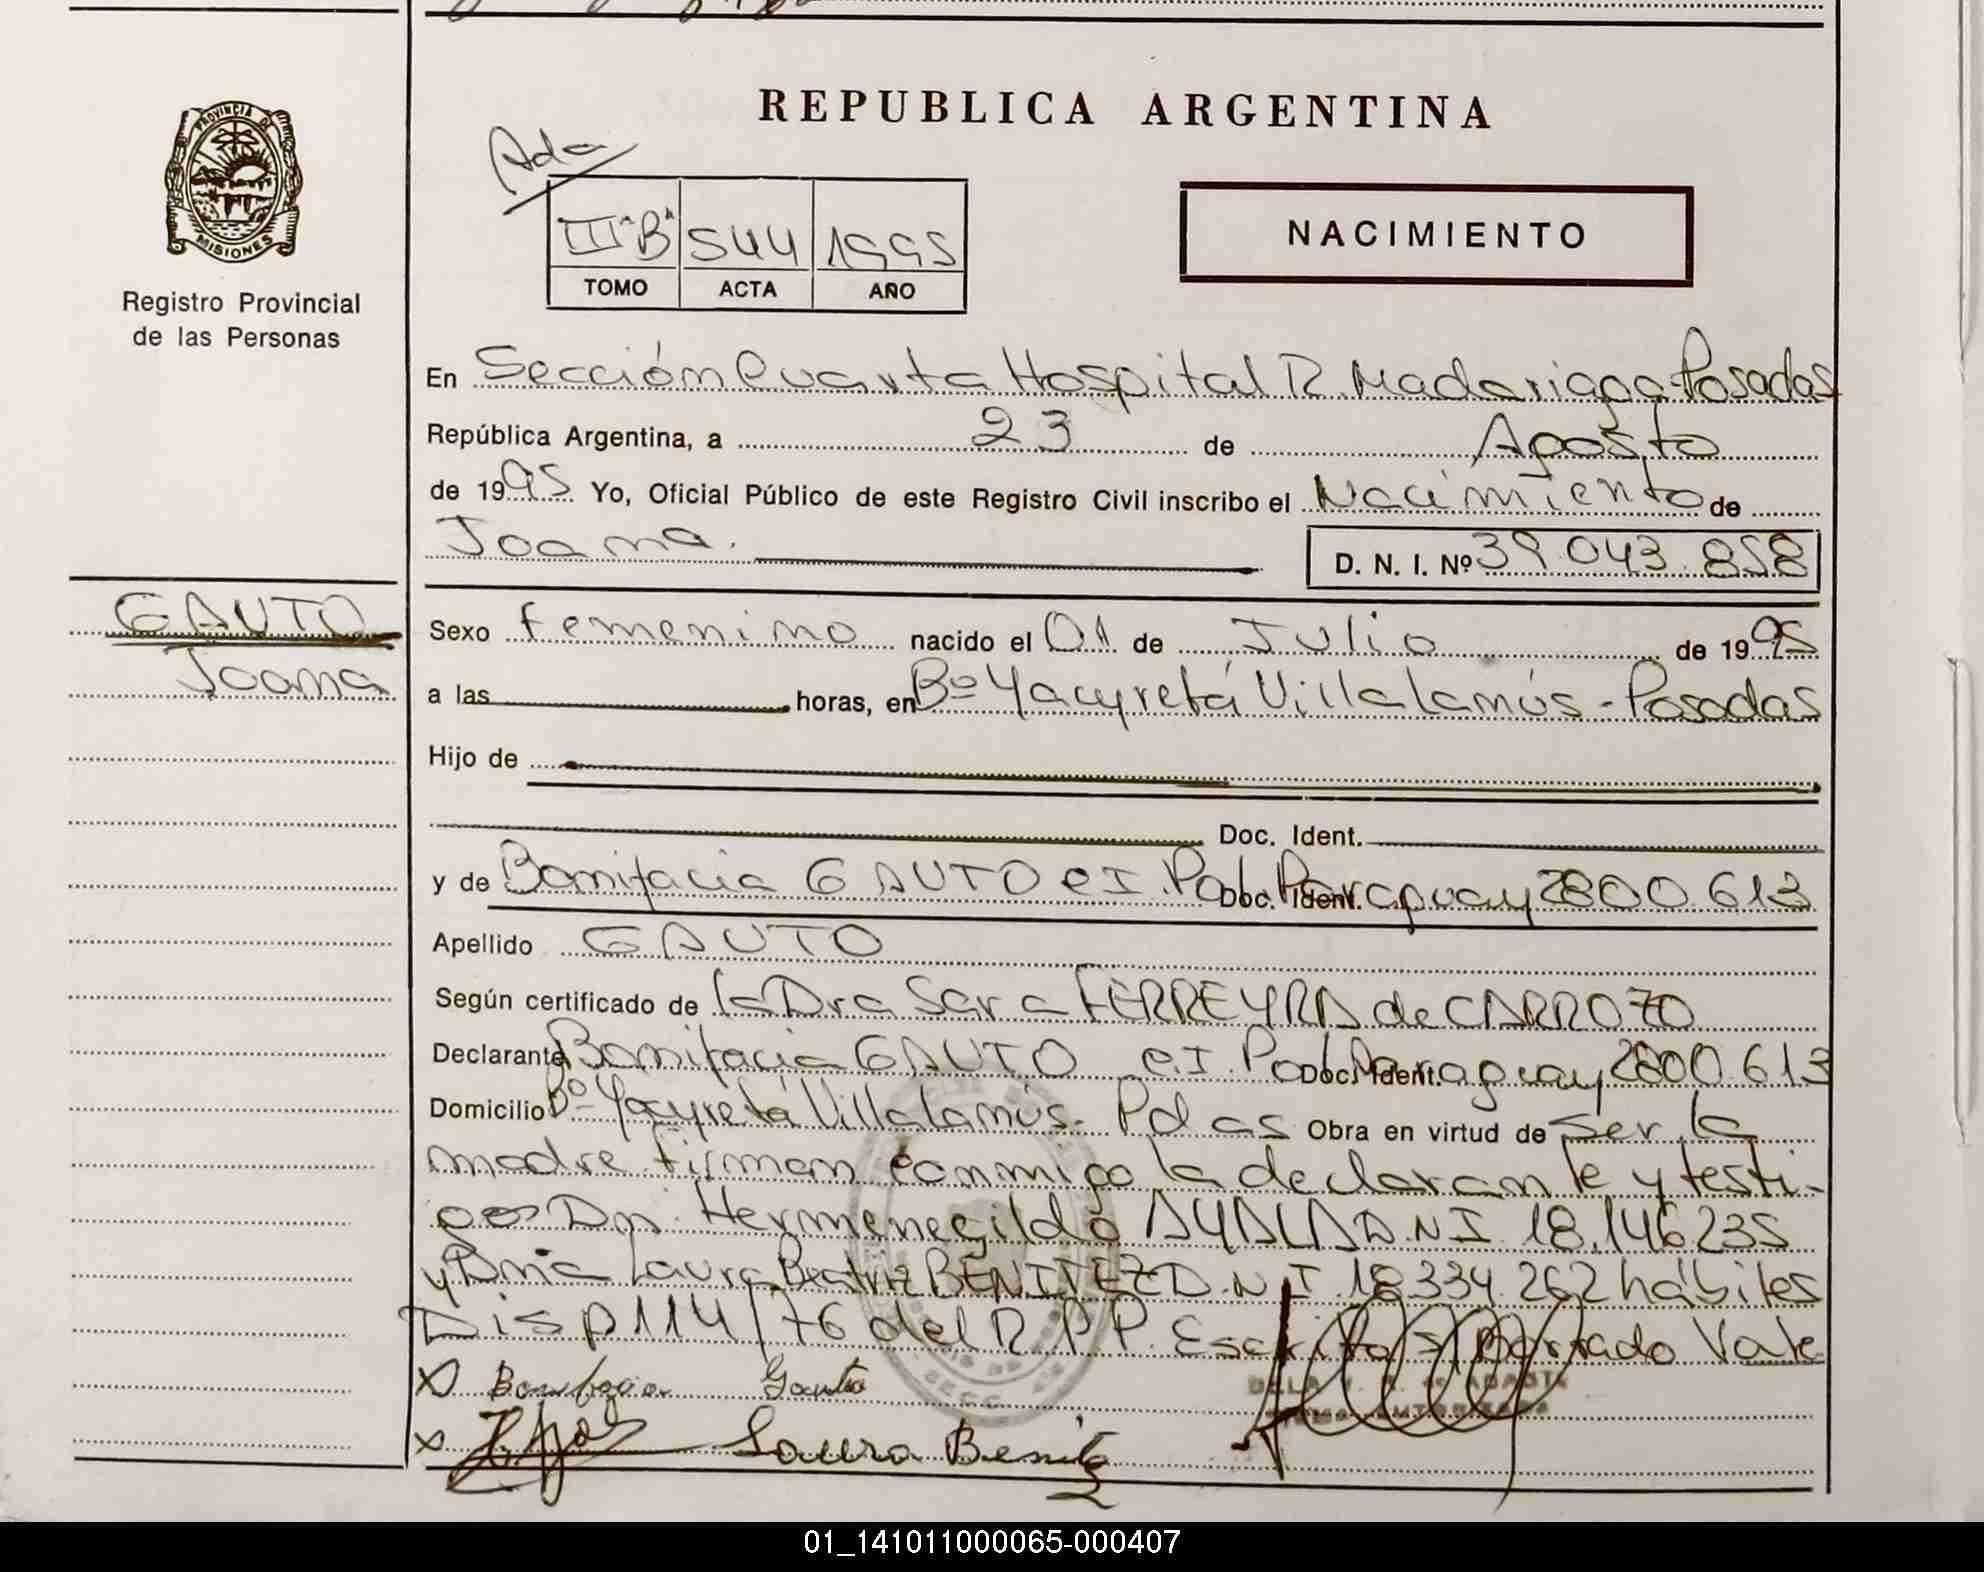 REPUBLICA ARGENTINA
PROVINCIA DE
MISIONES
Registro Provincial
de las Personas
Ada
III "B" 544 1995
TOMO ACTA AÑO
NACIMIENTO
En Sección Cuarta Hospital R. Madariaga-Posadas
República Argentina, a 23 de Agosto
de 1995 Yo, Oficial Público de este Registro Civil inscribo el Nacimiento de
Joana. D. N. I. Nº 39.043.858
GAUTO
Joana
Sexo femenino nacido el 01 de Julio de 1995
a las horas, en Bº Yacyretá Villa Lanús - Posadas
Hijo de
Doc. Ident.
y de Bonifacia GAUTO C.I. Pol. Paraguay 2800.613
Doc. Ident.
Apellido GAUTO
Según certificado de la Dra Sara FERREYRA de CARROZO
Declarante Bonifacia GAUTO C.I. Pol. Paraguay 2800.613
Doc. Ident.
Domicilio Bº Yacyretá Villa Lanús - Pdas Obra en virtud de ser la
madre firman conmigo la declarante y testi-
gos Dn. Hermenegildo AYALA D.N.I. 18.146.235
y Dña Laura Beatriz BENITEZ D.N.I. 18.334.262 hábiles
Disp 114/76 del R.P.P. Escrito s/ Borrado Vale
X Bonifacia Gauto
X Laura Benitez
01_141011000065-000407